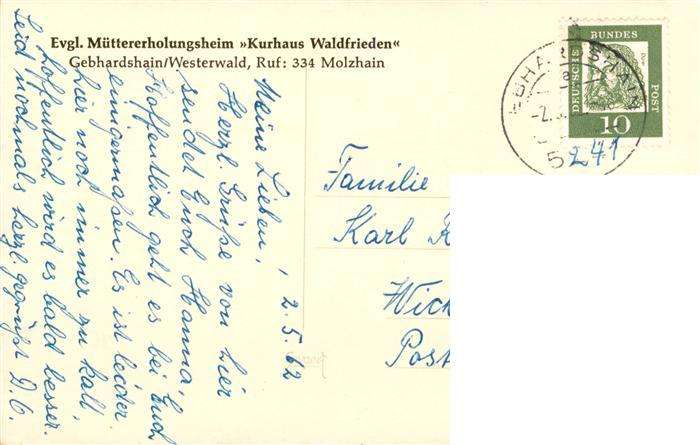 Evgl. Müttererholungsheim »Kurhaus Waldfrieden«
Gebhardshain/Westerwald, Ruf: 334 Molzhain
2.5.62
Meine Lieben!
Herzl. Grüße von hier
sendet Euch Hanna,
Hoffentlich geht es bei Euch
einigermaßen. Es ist leider
hier noch immer zu kalt,
hoffentlich wird es bald besser.
Seid nochmals herzl. gegrüßt D.O.
DEUTSCHE BUNDES POST
10
5241
Familie
Karl
Wick
Post